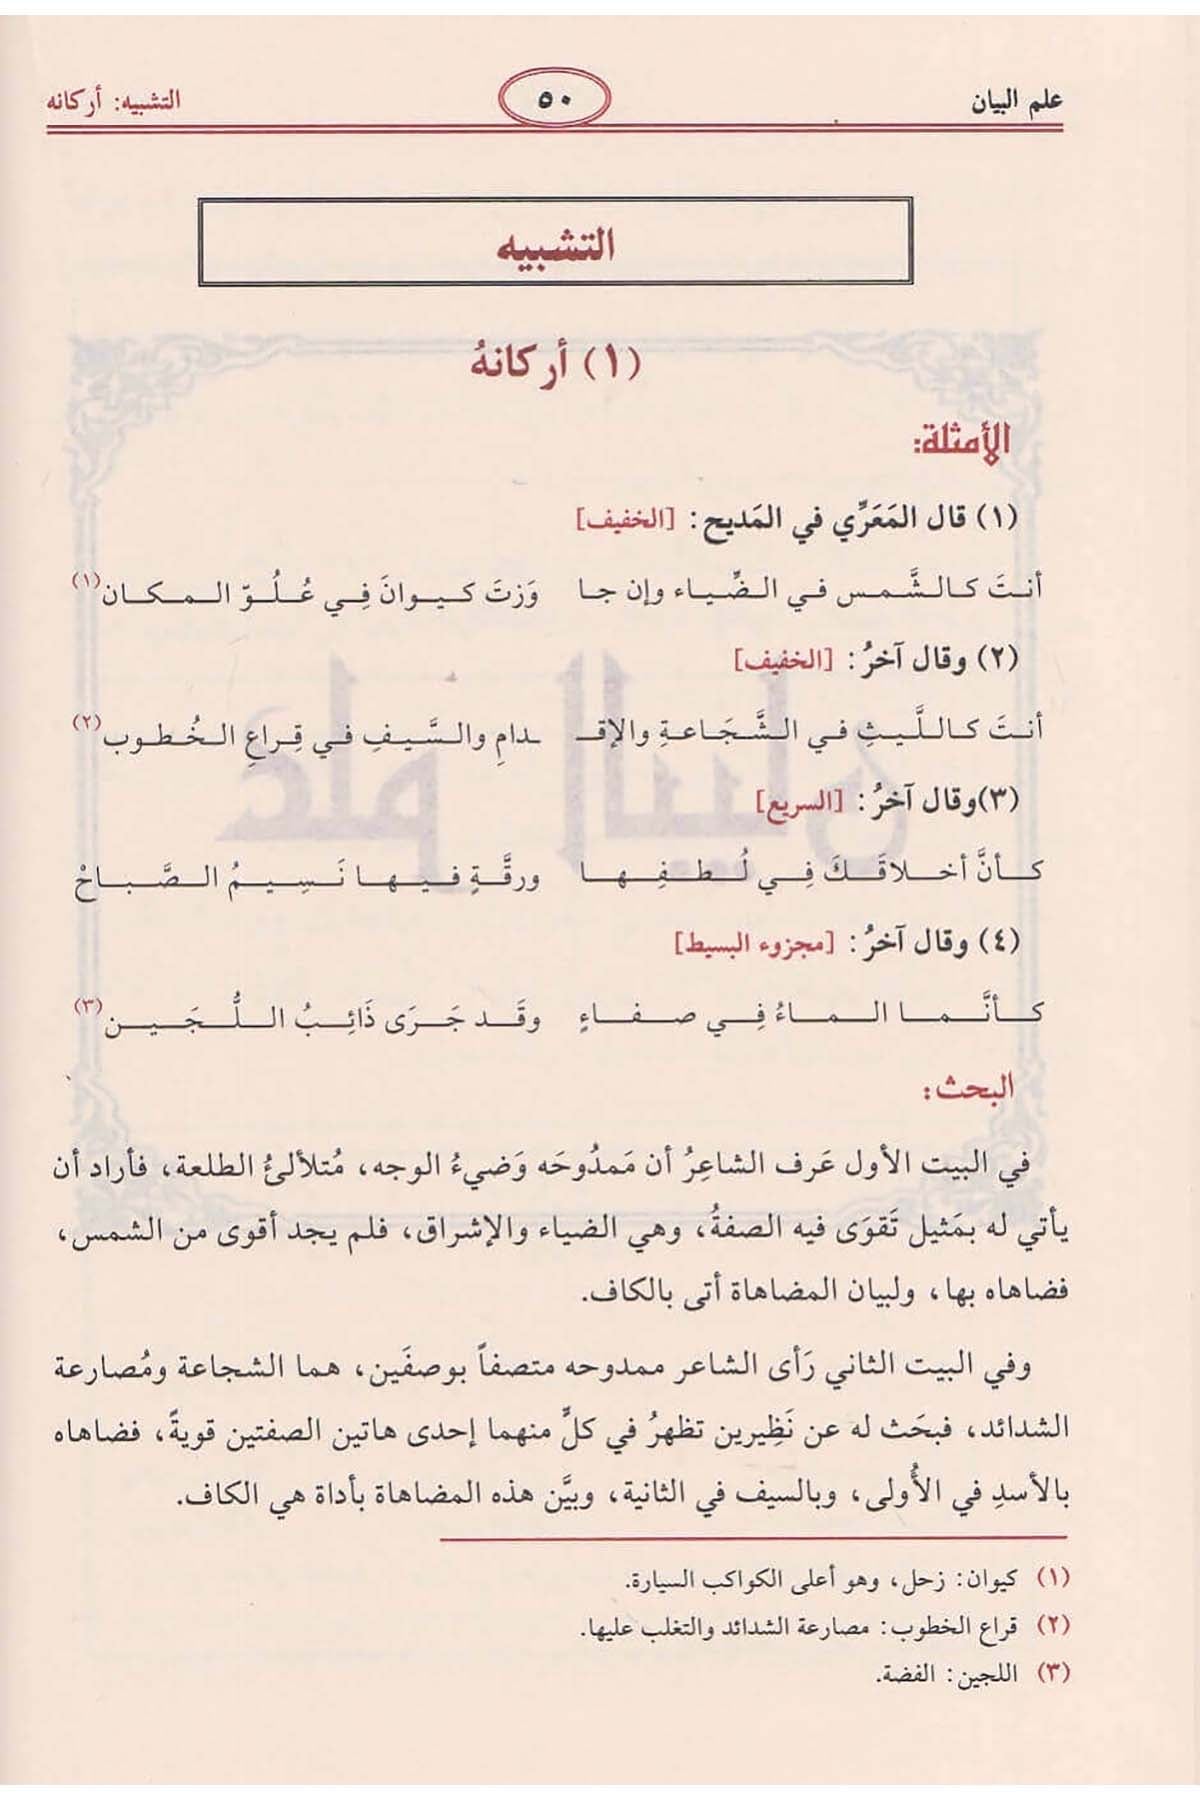 علم البيان ٥٠ التشبيه: أركانه
التشبيه
(١) أركانهُ
الأمثلة:
(١) قال المَعَرِّي في المَديح: [الخفيف]
أنتَ كالشَّمس في الضِّياء وإن جا وَزتَ كيوانَ فِي عُلُوّ المكان(١)
(٢) وقال آخرُ: [الخفيف]
أنتَ كاللَّيثِ في الشَّجَاعةِ والإقـ ـدامِ والسَّيفِ في قِراعِ الخُطوب(٢)
(٣)وقال آخرُ: [السريع]
كأنَّ أخلاقَكَ فِي لُطفِها ورقَّةٍ فيها نَسِيمُ الصَّباحْ
(٤) وقال آخرُ: [مجزوء البسيط]
كأنَّما الماءُ فِي صفاءٍ وقَد جَرَى ذَائِبُ اللُّجَين(٣)
البحث:
في البيت الأول عَرف الشاعِرُ أن مَمدُوحَه وَضيءُ الوجه، مُتلألئُ الطلعة، فأراد أن
يأتي له بمَثيل تَقوَى فيه الصفةُ، وهي الضياء والإشراق، فلم يجد أقوى من الشمس،
فضاهاه بها، ولبيان المضاهاة أتى بالكاف.
وفي البيت الثاني رَأى الشاعر ممدوحه متصفاً بوصفَين، هما الشجاعة ومُصارعة
الشدائد، فبحَث له عن نَظِيرين تظهرُ في كلٍّ منهما إحدى هاتين الصفتين قويةً، فضاهاه
بالأسدِ في الأُولى، وبالسيف في الثانية، وبيَّن هذه المضاهاة بأداة هي الكاف.
(١) كيوان: زحل، وهو أعلى الكواكب السيارة.
(٢) قراع الخطوب: مصارعة الشدائد والتغلب عليها.
(٣) اللجين: الفضة.